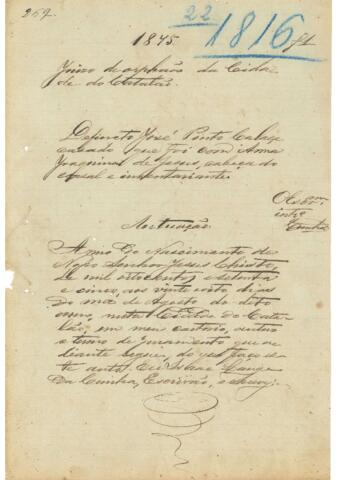 259.
22
1816
fl
1875.
Juizo de orphãos da Cida-
de do Catalão.
Defuncto José Pinto
casado que foi com Anna
Joaquina de Jesus, cabeça do
casal e inventariante.
O Esc.am
Cunha
Autuação
Anno do Nascimento de
Nosso Senhor Jesus Christo,
de mil oitocentos e setenta
e cinco, aos vinte oito dias
do mez de Agosto do dito
anno, nesta Cidade do Cata-
lão, em meu cartorio, autuo
o termo de juramento que a-
diante segue, do que faço es-
te auto. Eu Isaac
da Cunha, Escrivão, o escrevi.